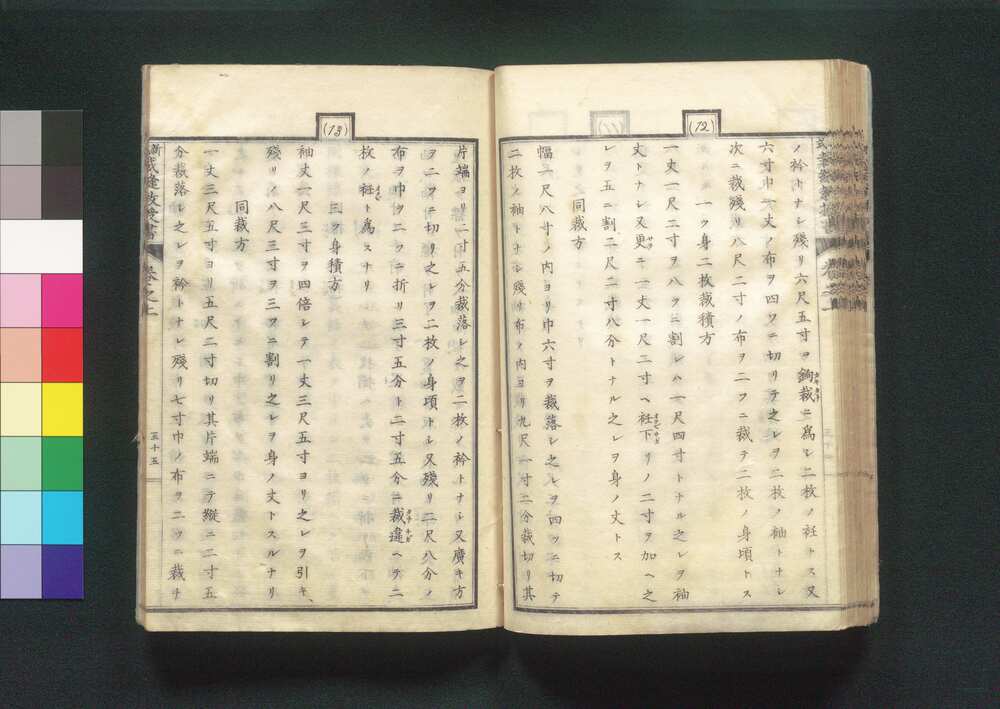 (12)
ノ衽トナシ殘リ六尺五寸ヲ鉤裁ニ爲シ二枚ノ衽トス又
六寸巾一丈ノ布ヲ四ツニ切リテ之レヲ二枚ノ袖トナシ
次ニ裁殘リ八尺二寸ノ布ヲ二ツニ裁テ二枚ノ身頃トス
一ツ身二枚裁積方
一丈一尺二寸ヲ八ツニ割レハ一尺四寸トナル之レヲ袖
丈トナシ又更ニ一丈一尺二寸ヘ衽下リノ二寸ヲ加ヘ之
レヲ五ニ割二尺二寸八分トナル之レヲ身ノ丈トス
同裁方
幅一尺八寸ノ内ヨリ巾六寸ヲ裁落シ之レヲ四ツニ切テ
二枚ノ袖トナシ殘リ布ノ内ヨリ九尺一寸二分裁切リ其
(13)
片端ヨリ二寸五分裁落シ之ヲ二枚ノ衿トナシ又廣キ方
ヲ二ツニ切リ之レヲ二枚ノ身頃トシ又殘リ二尺八分ノ
布ヲ巾ヲ二ツニ折リ三寸五分ト二寸五分ニ裁違ヘテ二
枚ノ衽ト爲スナリ
三ツ身積方
袖丈一尺三寸ヲ四倍シテ一丈三尺五寸ヨリ之レヲ引キ、
殘リノ八尺三寸ヲ三ツニ割リ之レヲ身ノ丈トスルナリ
同裁方
一丈三尺五寸ヨリ五尺二寸切リ其片端ニテ縱ニ二寸五
分裁落シ之レヲ衿トナシ殘リ七寸巾ノ布ヲ二ツニ裁チ
裁縫教授書
卷之上
三十五